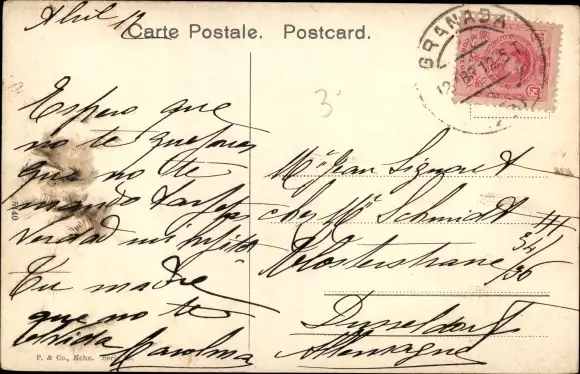 Abril 12
Carte Postale. Postcard.
GRANADA
3
Espero que
no te quejaras
que no te
mando tarjetas
verdad mi hijita
Tu madre
que no te
olvida Carolina
Mr Jean Signoret
chez Mr Schmidt
Klosterstrasse 34/36
Dusseldorf
Allemagne
P. & Co., Hchn. Ser